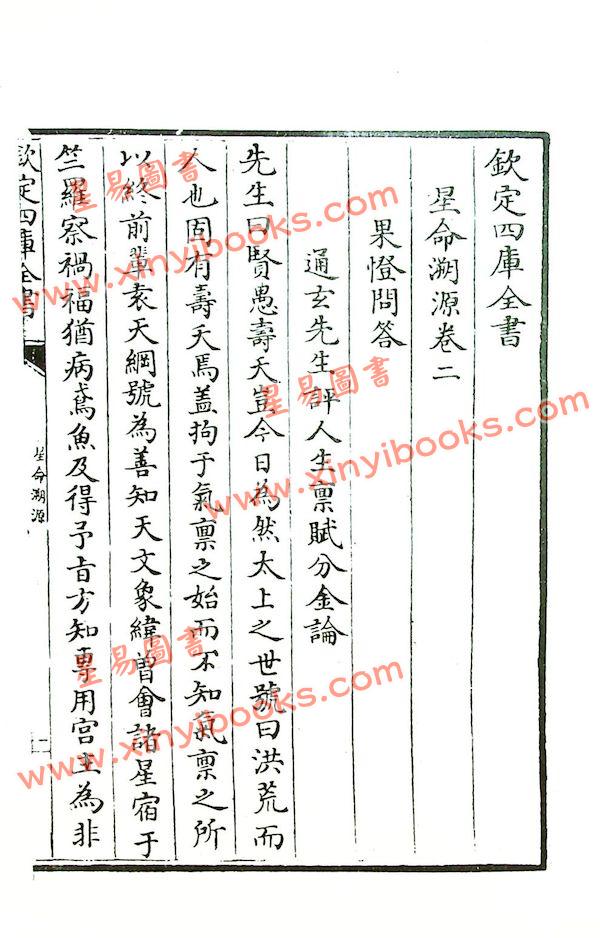 欽定四庫全書
星命溯源卷二
果憕問答
通玄先生評人生禀賦分金論
先生曰賢愚壽夭豈今日為然太上之世號曰洪荒而
人也固有壽夭焉蓋拘于氣禀之始而不知氣禀之所
以終前輩袁天綱號為善知天文象緯曽會諸星宿于
竺羅察禍福猶病鳶魚及得予旨方知專用宫主為非
欽定四庫全書
星命溯源
一
星易圖書
www.xinyibooks.com
星易圖書
www.xinyibooks.com
星易圖書
www.xinyibooks.com